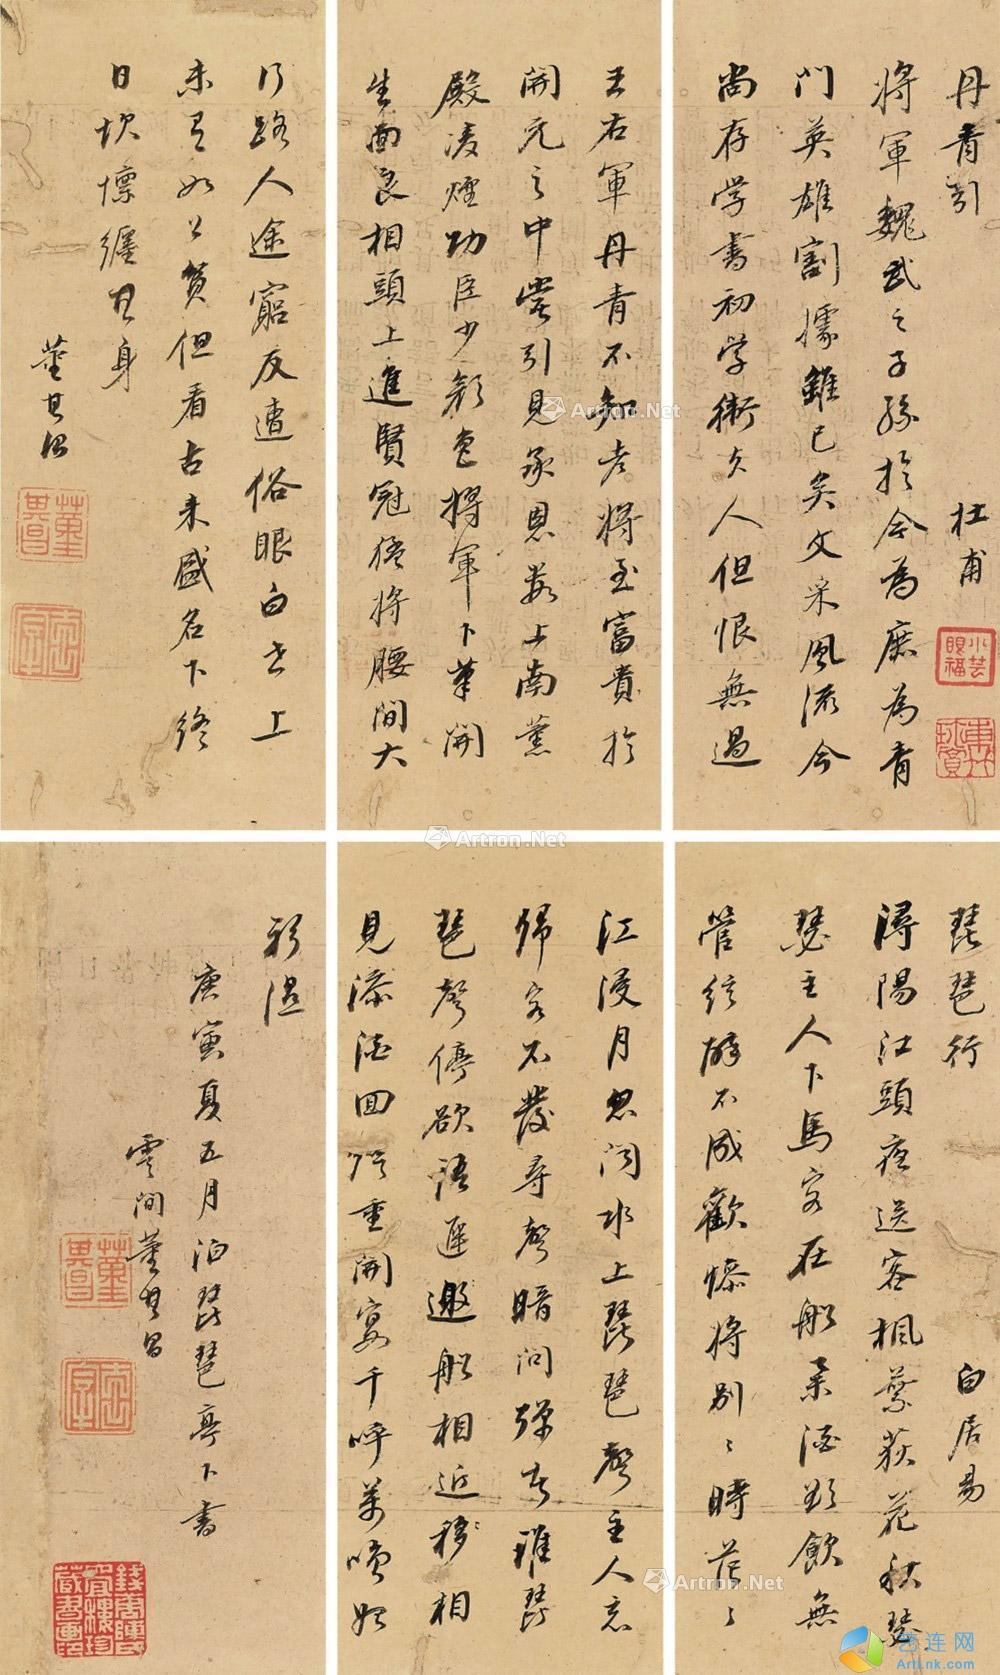 丹青引
杜甫
将軍魏武之子孫於今為庶為青
門英雄割據雖已矣文采風流今
尚存学書初学衛夫人但恨無過
王右軍丹青不知老将至富貴於
開元之中常引見承恩數上南薰
殿凌煙功臣少顏色将軍下筆開
生面良相頭上進賢冠猛将腰間大
行路人途窮反遭俗眼白世上
未有如公貧但看古来盛名下終
日坎懍纏其身
董其昌
董其昌
小芸眼福
琵琶行
白居易
潯陽江頭夜送客楓葉荻花秋瑟
瑟主人下馬客在船舉酒欲飲無
管絃醉不成歡慘将別〻時茫〻
江浸月忽闻水上琵琶聲主人忘
歸客不發尋聲暗问彈者誰琵
琶聲停欲語遲邀船相近移相
見添酒回燈重開宴千呼萬喚始
庚寅夏五月泊琵琶亭下書
雲间董其昌
董其昌
Artron.Net
Artron.Net
Artron.Net
艺连网
ArtLnk.com